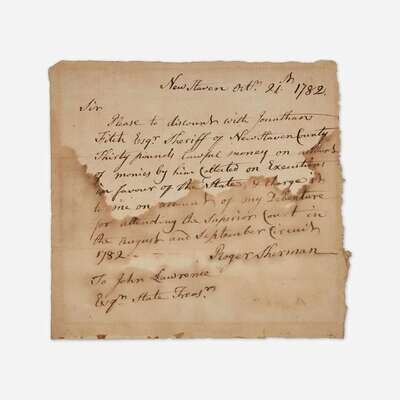 New Haven Octr. 21th 1782.
Sir
Please to discount with Jonathan
Fitch Esqr. Sheriff of New Haven County
Thirty pounds lawful money on account
of monies by him Collected on Executions
in favour of the State & charge it
to me on account of my Debenture
for attending the Superior Court in
the August and September Circuit
1782.
Roger Sherman
To John Lawrence
Esqr. State Treasr.